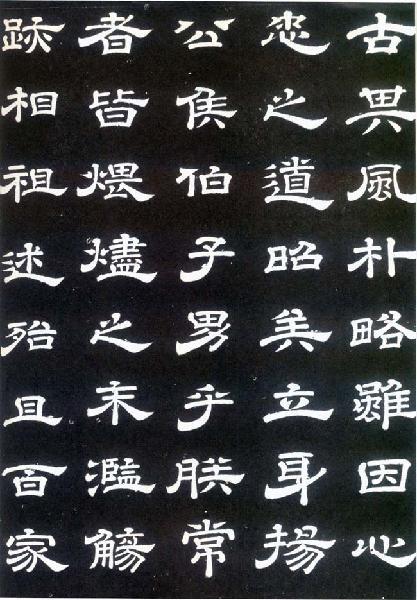 古其風朴略雖因心
忠之道昭矣立身揚
公侯伯子男乎朕常
者皆煨燼之末濫觴
跡相祖述殆且百家